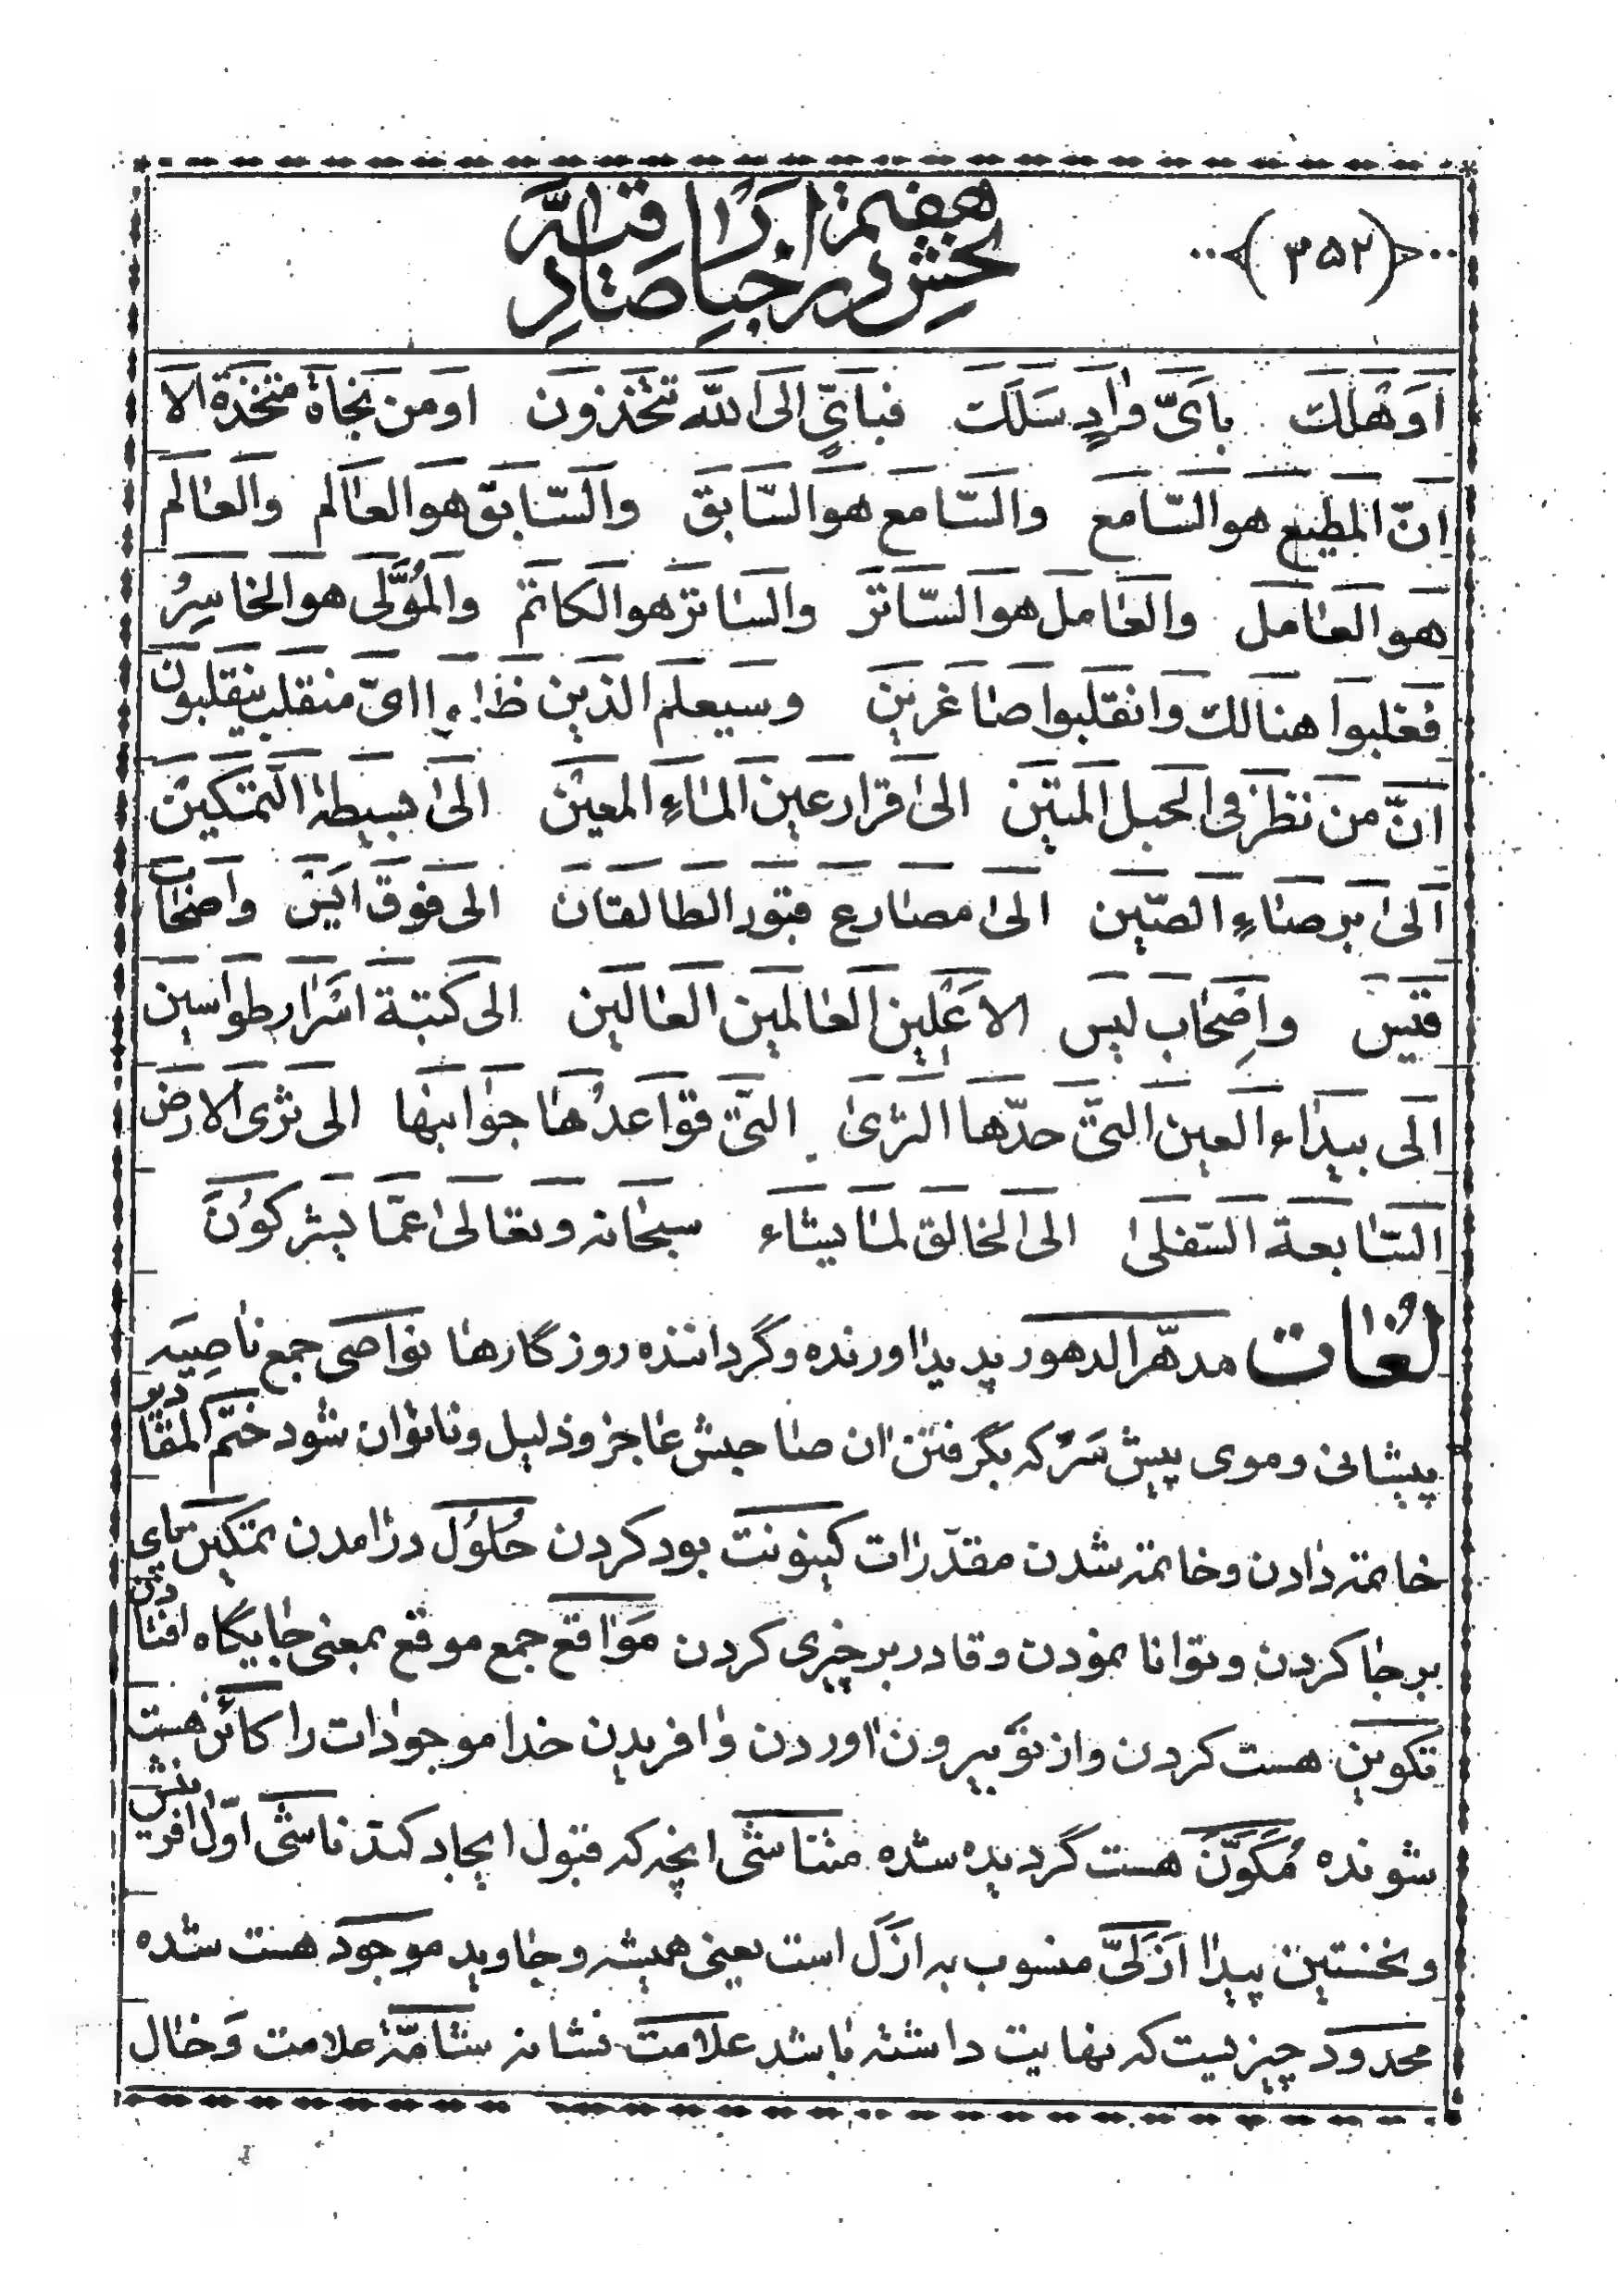 (۳۵۲)
بخش هفتم در اخبار صادقیه
اَوَ هَلَكَ بِاَىّ وٰادٍ سَلَكَ فباىٍّ الى اللّه تتّخذون او من نجاة متّخذة الا
انّ المطیع هو السّامع والسّامع هو السّابق والسّابق هو العٰالم والعٰالم
هو العٰامل والعٰامل هو السّاتر والسٰاتر هو الكاتم والمُوَلّى هو الخٰاسِرُ
فغلبوا هنالك وانقلبوا صٰاغرین وسیعلم الذین اىّ منقلب ینقلبون
انّ من نظر فى الحبل المتین الىٰ قرار عین المٰاءِ المعین الىٰ بسیطة التمكین
الىٰ برصٰاءِ الصّین الىٰ مصٰارع قبور الطالقان الى فوق ایس واصحٰاب
قیس واصحٰاب لیس الاعلین العٰالمین العٰالین الى كتبة اسرٰار طواسین
الى بیدٰاء العین التى حدّها الثرىٰ التى قوٰاعدُهٰا جوٰانبها الى ثرى الارض
السّٰابعة السّفلىٰ الى الخالق لمٰا یشٰاء سبحٰانه وتعٰالىٰ عمّٰا یشركونَ
لغٰات مدهّر الدهور پدیدٰاورنده و گرداننده روزگارهٰا نوٰاصى جمع نٰاصِیَه
پیشانى و موى پیش سَر كه بگرفتن ان صٰاحبش عٰاجز و ذلیل و ناتوٰان شود ختم المقٰادیر
خاتمه دٰادن و خاتمه شدن مقدّرٰات كینونت بود كردن حُلُول درٰامدن تمكین پاى
بر جٰا كردن و توٰانا نمودن و قادر بر چیزى كردن مَوٰاقع جمع موقع بمعنى جٰایگاه افتٰادن
تكوین هست كردن و از نو بیرون اوردن و افریدن خدا موجودٰات را كائن هست
شونده مُكَوَّن هست گردیده شده منشٰاشى انچه كه قبول ایجاد كند ناشى اوّل افرینش
و نخستین پیدٰا اَزَلىّ منسوب به ازَل است یعنى همیشه و جٰاوید موجود هست شده
محدود چیزیست كه نهایت دٰاشته بٰاشد علٰامت نشانه شٰامّة علامت و خٰال